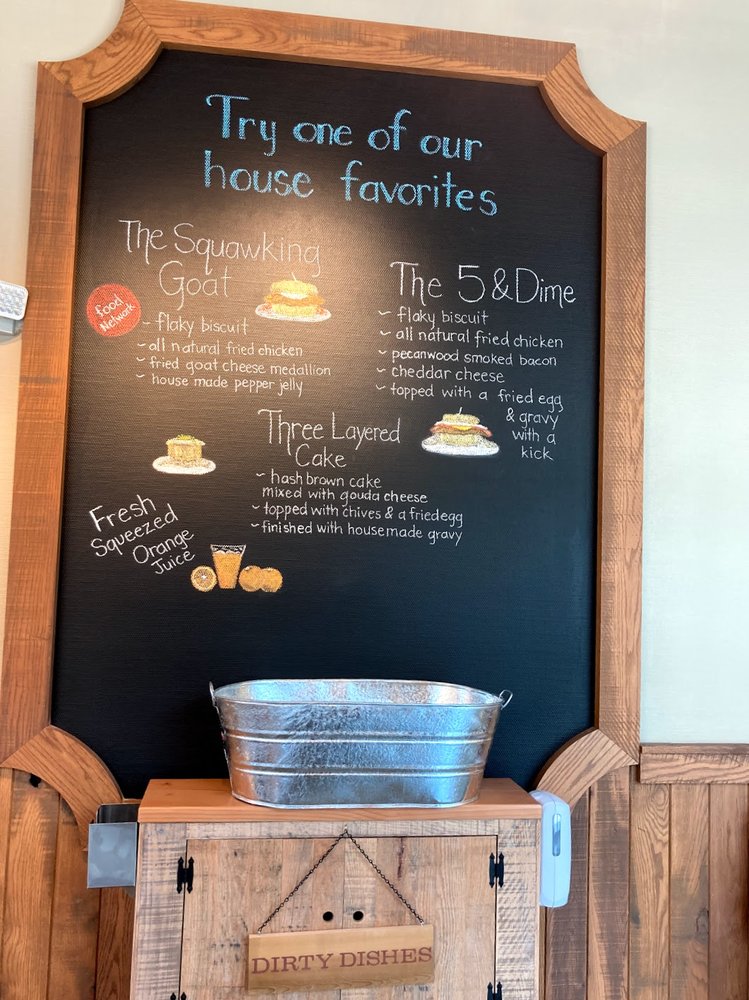 Try one of our
house favorites
The Squawking
Goat
food
Network
~ flaky biscuit
~ all natural fried chicken
~ fried goat cheese medallion
~ house made pepper jelly
The 5 & Dime
~ flaky biscuit
~ all natural fried chicken
~ pecanwood smoked bacon
~ cheddar cheese
~ topped with a fried egg
& gravy
with a
kick
Three Layered
Cake
~ hash brown cake
mixed with gouda cheese
~ topped with chives & a fried egg
~ finished with housemade gravy
Fresh
Squeezed
Orange
Juice
DIRTY DISHES